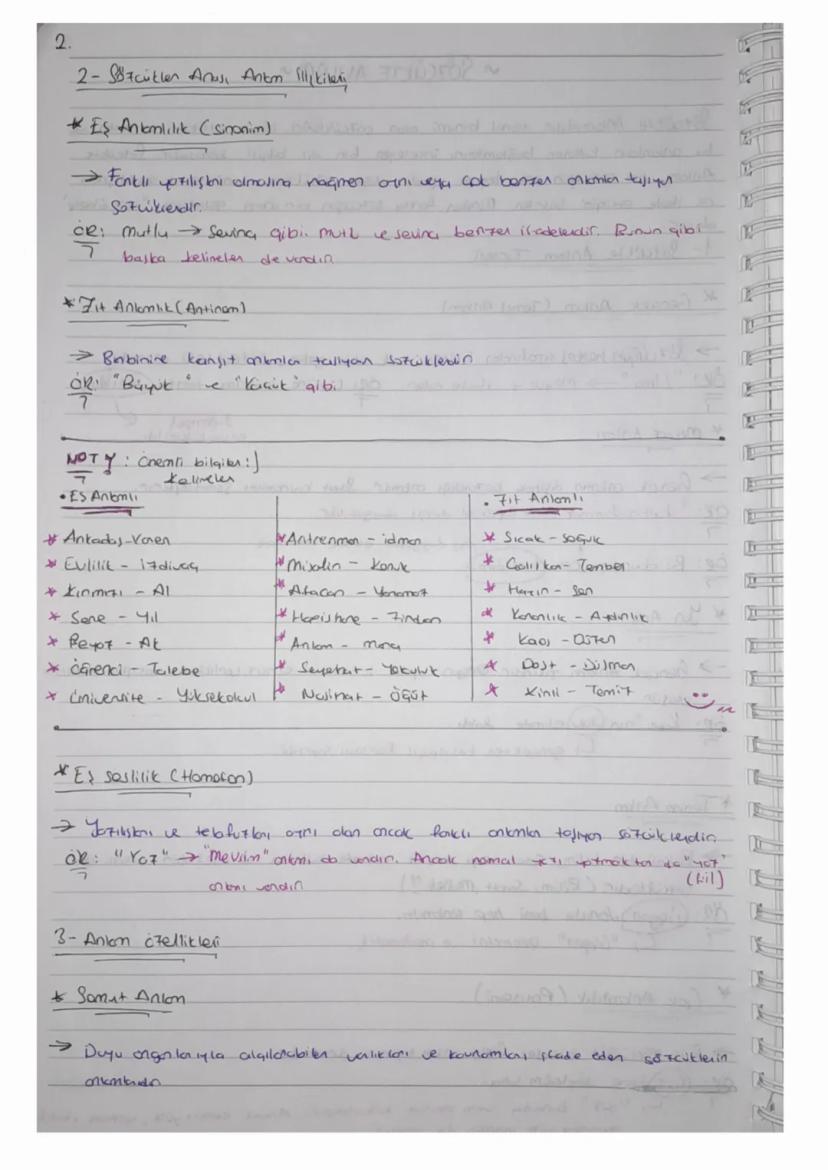 2.
2- Sözcükler Arası Anlam İlişkileri
* Eş Anlamlılık (Sinonim)
→ Farklı yazılışları olmasına rağmen aynı veya çok benzer anlamlar taşıyan
sözcüklerdir.
ÖR: Mutlu → Sevinç gibi. Mutlu ve sevinç benzer ifadelerdir. Bunun gibi
başka kelimeler de vardır.
* Zıt Anlamlılık (Antinom)
→ Birbirine karşıt anlamlar taşıyan sözcüklerdir
ÖR: "Büyük" ve "Küçük" gibi
NOT: Önemli bilgiler :)
kelimeler
• Eş Anlamlı
• Zıt Anlamlı
* Arkadaş - Yaren
* Antrenman - idman
* Sıcak - Soğuk
* Evlilik - İzdivaç
* Misafir - Konuk
* Çalışkan - Tembel
* Kırmızı - Al
* Afacan - Yaramaz
* Hüzün - Şen
* Sene - Yıl
* Hapishane - Zindan
* Karanlık - Aydınlık
* Beyaz - Ak
* Anlam - Mana
* Kaos - Düzen
* Öğrenci - Talebe
* Seyahat - Yolculuk
* Dost - Düşman
* Üniversite - Yüksekokul
* Nasihat - Öğüt
* Kirli - Temiz
* Eş seslilik (Homofon)
→ Yazılışları ve telaffuzları aynı olan ancak farklı anlamlar taşıyan sözcüklerdir
ÖR: "Yaz" → "Mevsim" anlamı da vardır. Ancak normal yazı yazmaktan da "yaz"
(fiil)
anlamı vardır
3- Anlam özellikleri
* Somut Anlam
→ Duyu organlarıyla algılanabilen varlıkları ve kavramları ifade eden sözcüklerin
anlamlarıdır